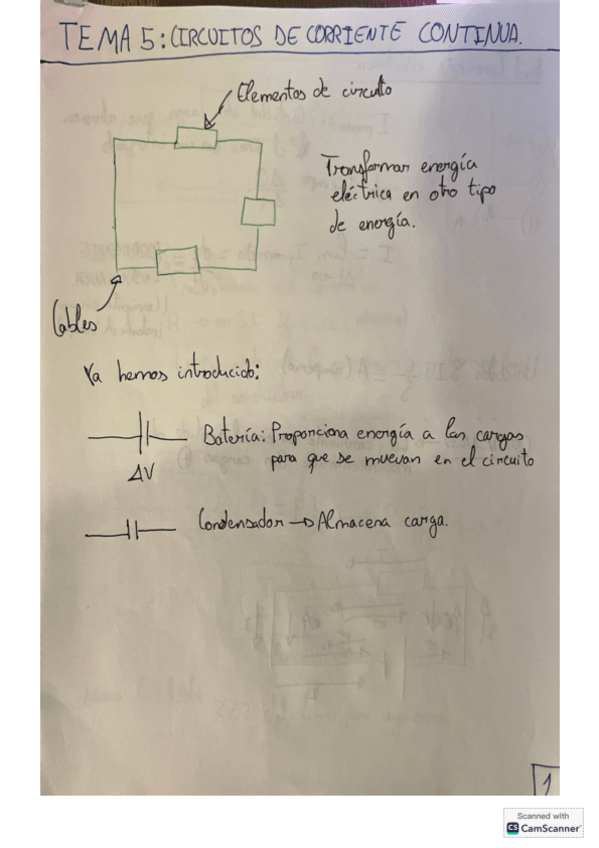 TEMA 5: CIRCUITOS DE CORRIENTE CONTINUA.
Elementos de circuito
Transformar energía
eléctrica en otro tipo
de energía.
Cables
Ya hemos introducido:
Batería: Proporciona energía a las cargas
para que se muevan en el circuito
ΔV
Condensador → Almacena carga.
1
Scanned with
CS CamScanner